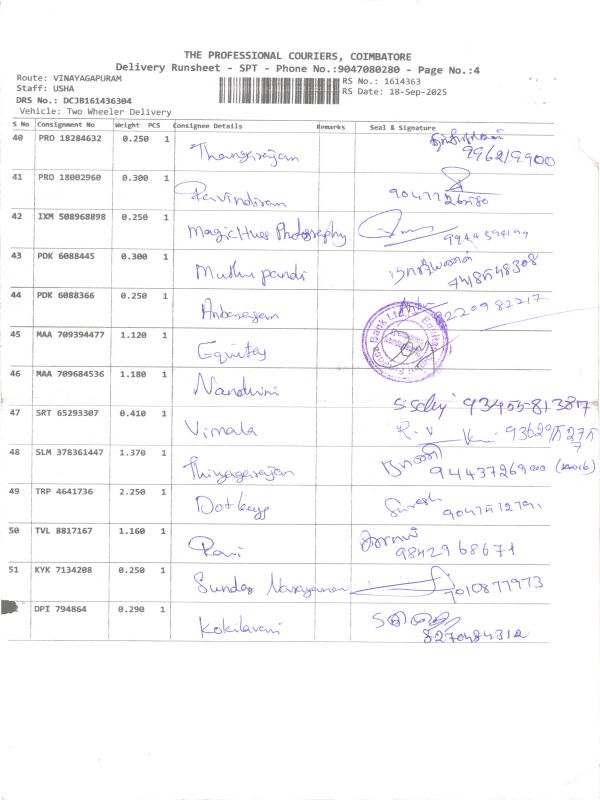 THE PROFESSIONAL COURIERS, COIMBATORE
Delivery Runsheet - SPT - Phone No.:9047080280 - Page No.:4
Route: VINAYAGAPURAM
RS No.: 1614363
Staff: USHA
RS Date: 18-Sep-2025
DRS No.: DCJB161436304
Vehicle: Two Wheeler Delivery
S No Consignment No Weight PCS Consignee Details Remarks Seal & Signature
40 PRO 18284632 0.250 1 Thangarajan
41 PRO 18002960 0.300 1 Ravindiran
42 IXM 508968898 0.250 1 Magic Hues Photography
43 PDK 6088445 0.300 1 Muthu pandi 7418548308
44 PDK 6088366 0.250 1 8220982217
45 MAA 709394477 1.120 1 Equitas
46 MAA 709684536 1.180 1 Nandhini 9345581387
47 SRT 65293307 0.410 1 Vimala R.V
48 SLM 378361447 1.370 1 Thiyagarajan
49 TRP 4641736 2.250 1 Dotkeys Suresh
50 TVL 8817167 1.160 1 Ravi 9842968671
51 KYK 7134208 0.250 1 Sundar Narayanan 9010877973
DPI 794864 0.290 1 Kokilavani 8270484312